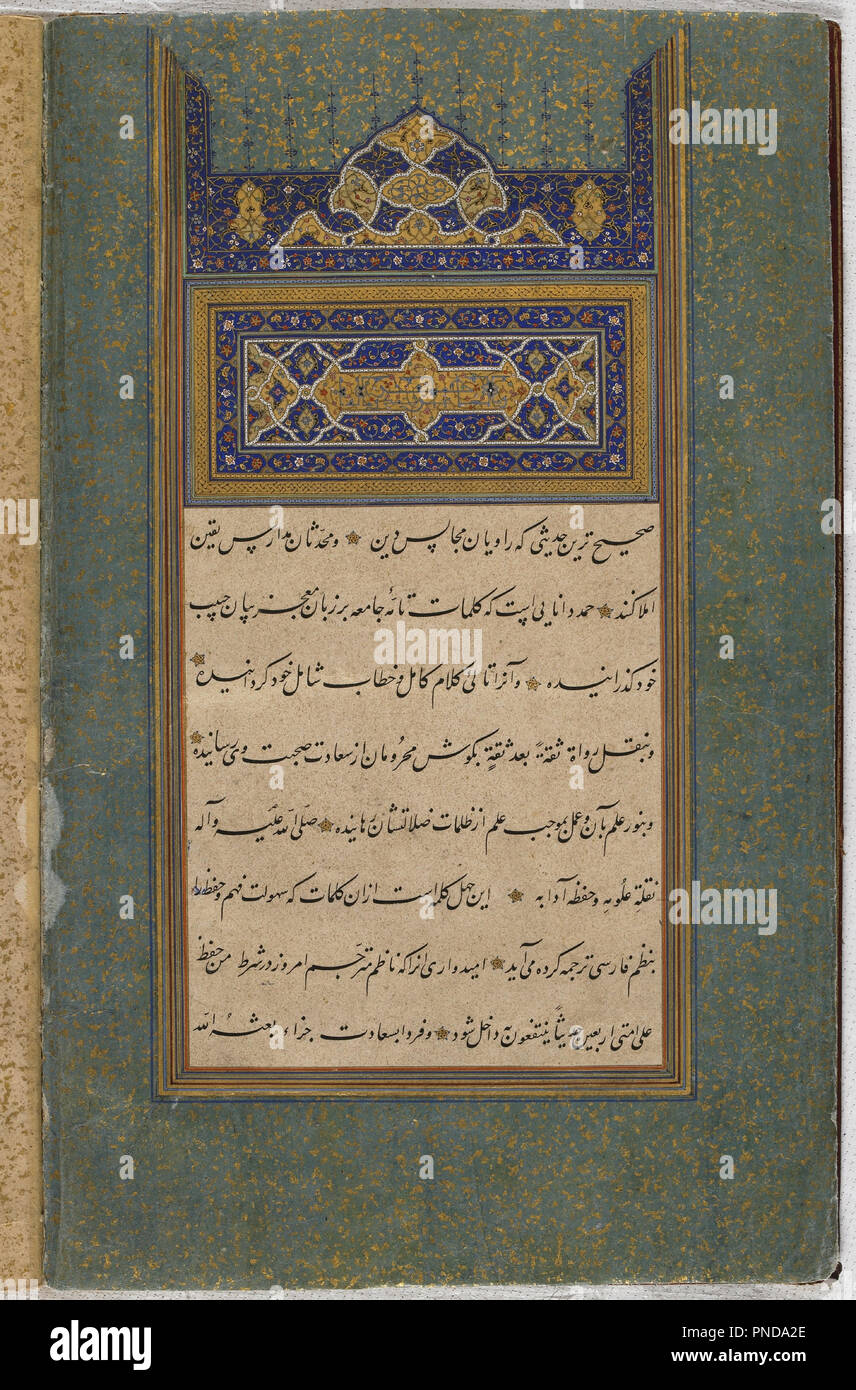 صحیح ترین حدیثی که راویان مجالس دین و محدّثان مدارس یقین
املا کنند حمد دانایی است که کلمات تامّهٔ جامعه بر زبان معجز بیان حبیب
خود گذرانیده و آنرا تالی کلام کامل و خطاب شامل خود گردانیده
و بنقل رواة ثقةً بعد ثقةٍ بگوش محرومان از سعادت صحبت وی رسانیده
و بنور علم بآن و عمل بموجب علم از ظلمات ضلالتشان رهانیده صلّی الله علیه و آله
نقلة علومه و حفظة آدابه این چهل کلمه است ازان کلمات که سهولت فهم و حفظ را
بنظم فارسی ترجمه کرده می آید امیدواری آنرا که ناظم مترجم امروز در شرط من حفظ
علی امتی اربعین حدیثاً ینتفعون به داخل شود و فردا بسعادت جزاء بعثه الله
alamy stock photo
alamy
Image ID: PNDA2E
www.alamy.com